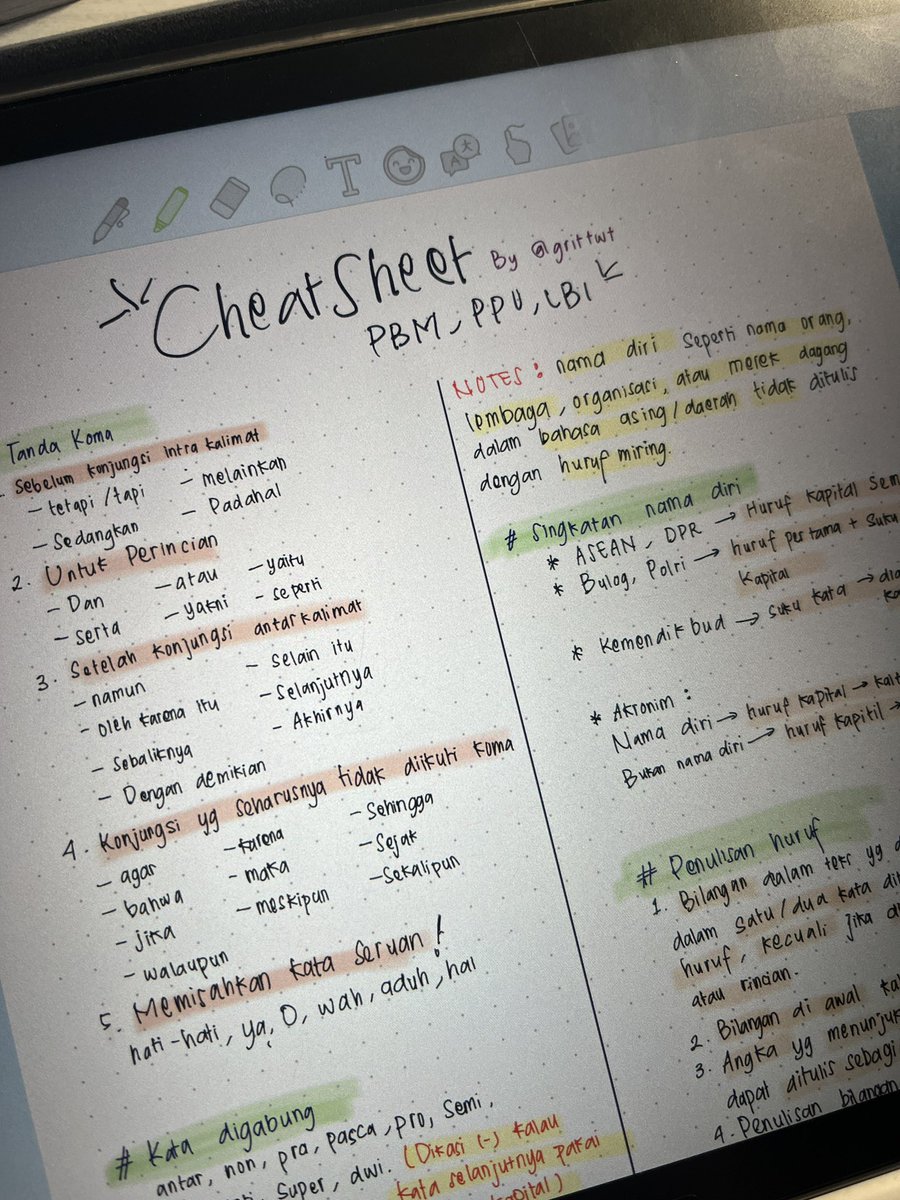 CheatSheet By @grittwt
PBM, PPU, LBI
Tanda Koma
Sebelum konjungsi intra kalimat
- tetapi /tapi - melainkan
- Sedangkan - Padahal
2. Untuk Perincian
- Dan - atau - yaitu
- serta - yakni - seperti
3. Setelah konjungsi antarkalimat
- namun - selain itu
- oleh karena itu - Selanjutnya
- sebaliknya - Akhirnya
- Dengan demikian
4. Konjungsi yg seharusnya tidak diikuti koma
- agar - karena - Sehingga
- bahwa - maka - Sejak
- jika - meskipun - Sekalipun
- walaupun
5. Memisahkan kata seruan!
hati-hati, ya, O, wah, aduh, hai
# Kata digabung
antar, non, pra, pasca, pro, Semi,
Super, dwi. (Dikasi (-) kalau
kata selanjutnya pakai
NOTES: nama diri seperti nama orang,
lembaga, organisasi, atau merek dagang
dalam bahasa asing/daerah tidak ditulis
dengan huruf miring.
# Singkatan nama diri
* ASEAN, DPR → Huruf kapital
* Bulog, Polri → huruf pertama + suku
kapital
* Kemendikbud → suku kata →
* Akronim:
Nama diri → huruf kapital →
Bukan nama diri → huruf kapitil →
# Penulisan huruf
1. Bilangan dalam teks yg
dalam satu/dua kata
huruf, kecuali jika
atau rincian.
2. Bilangan di awal
3. Angka yg
dapat ditulis sebagi
4. Penulisan bilangan